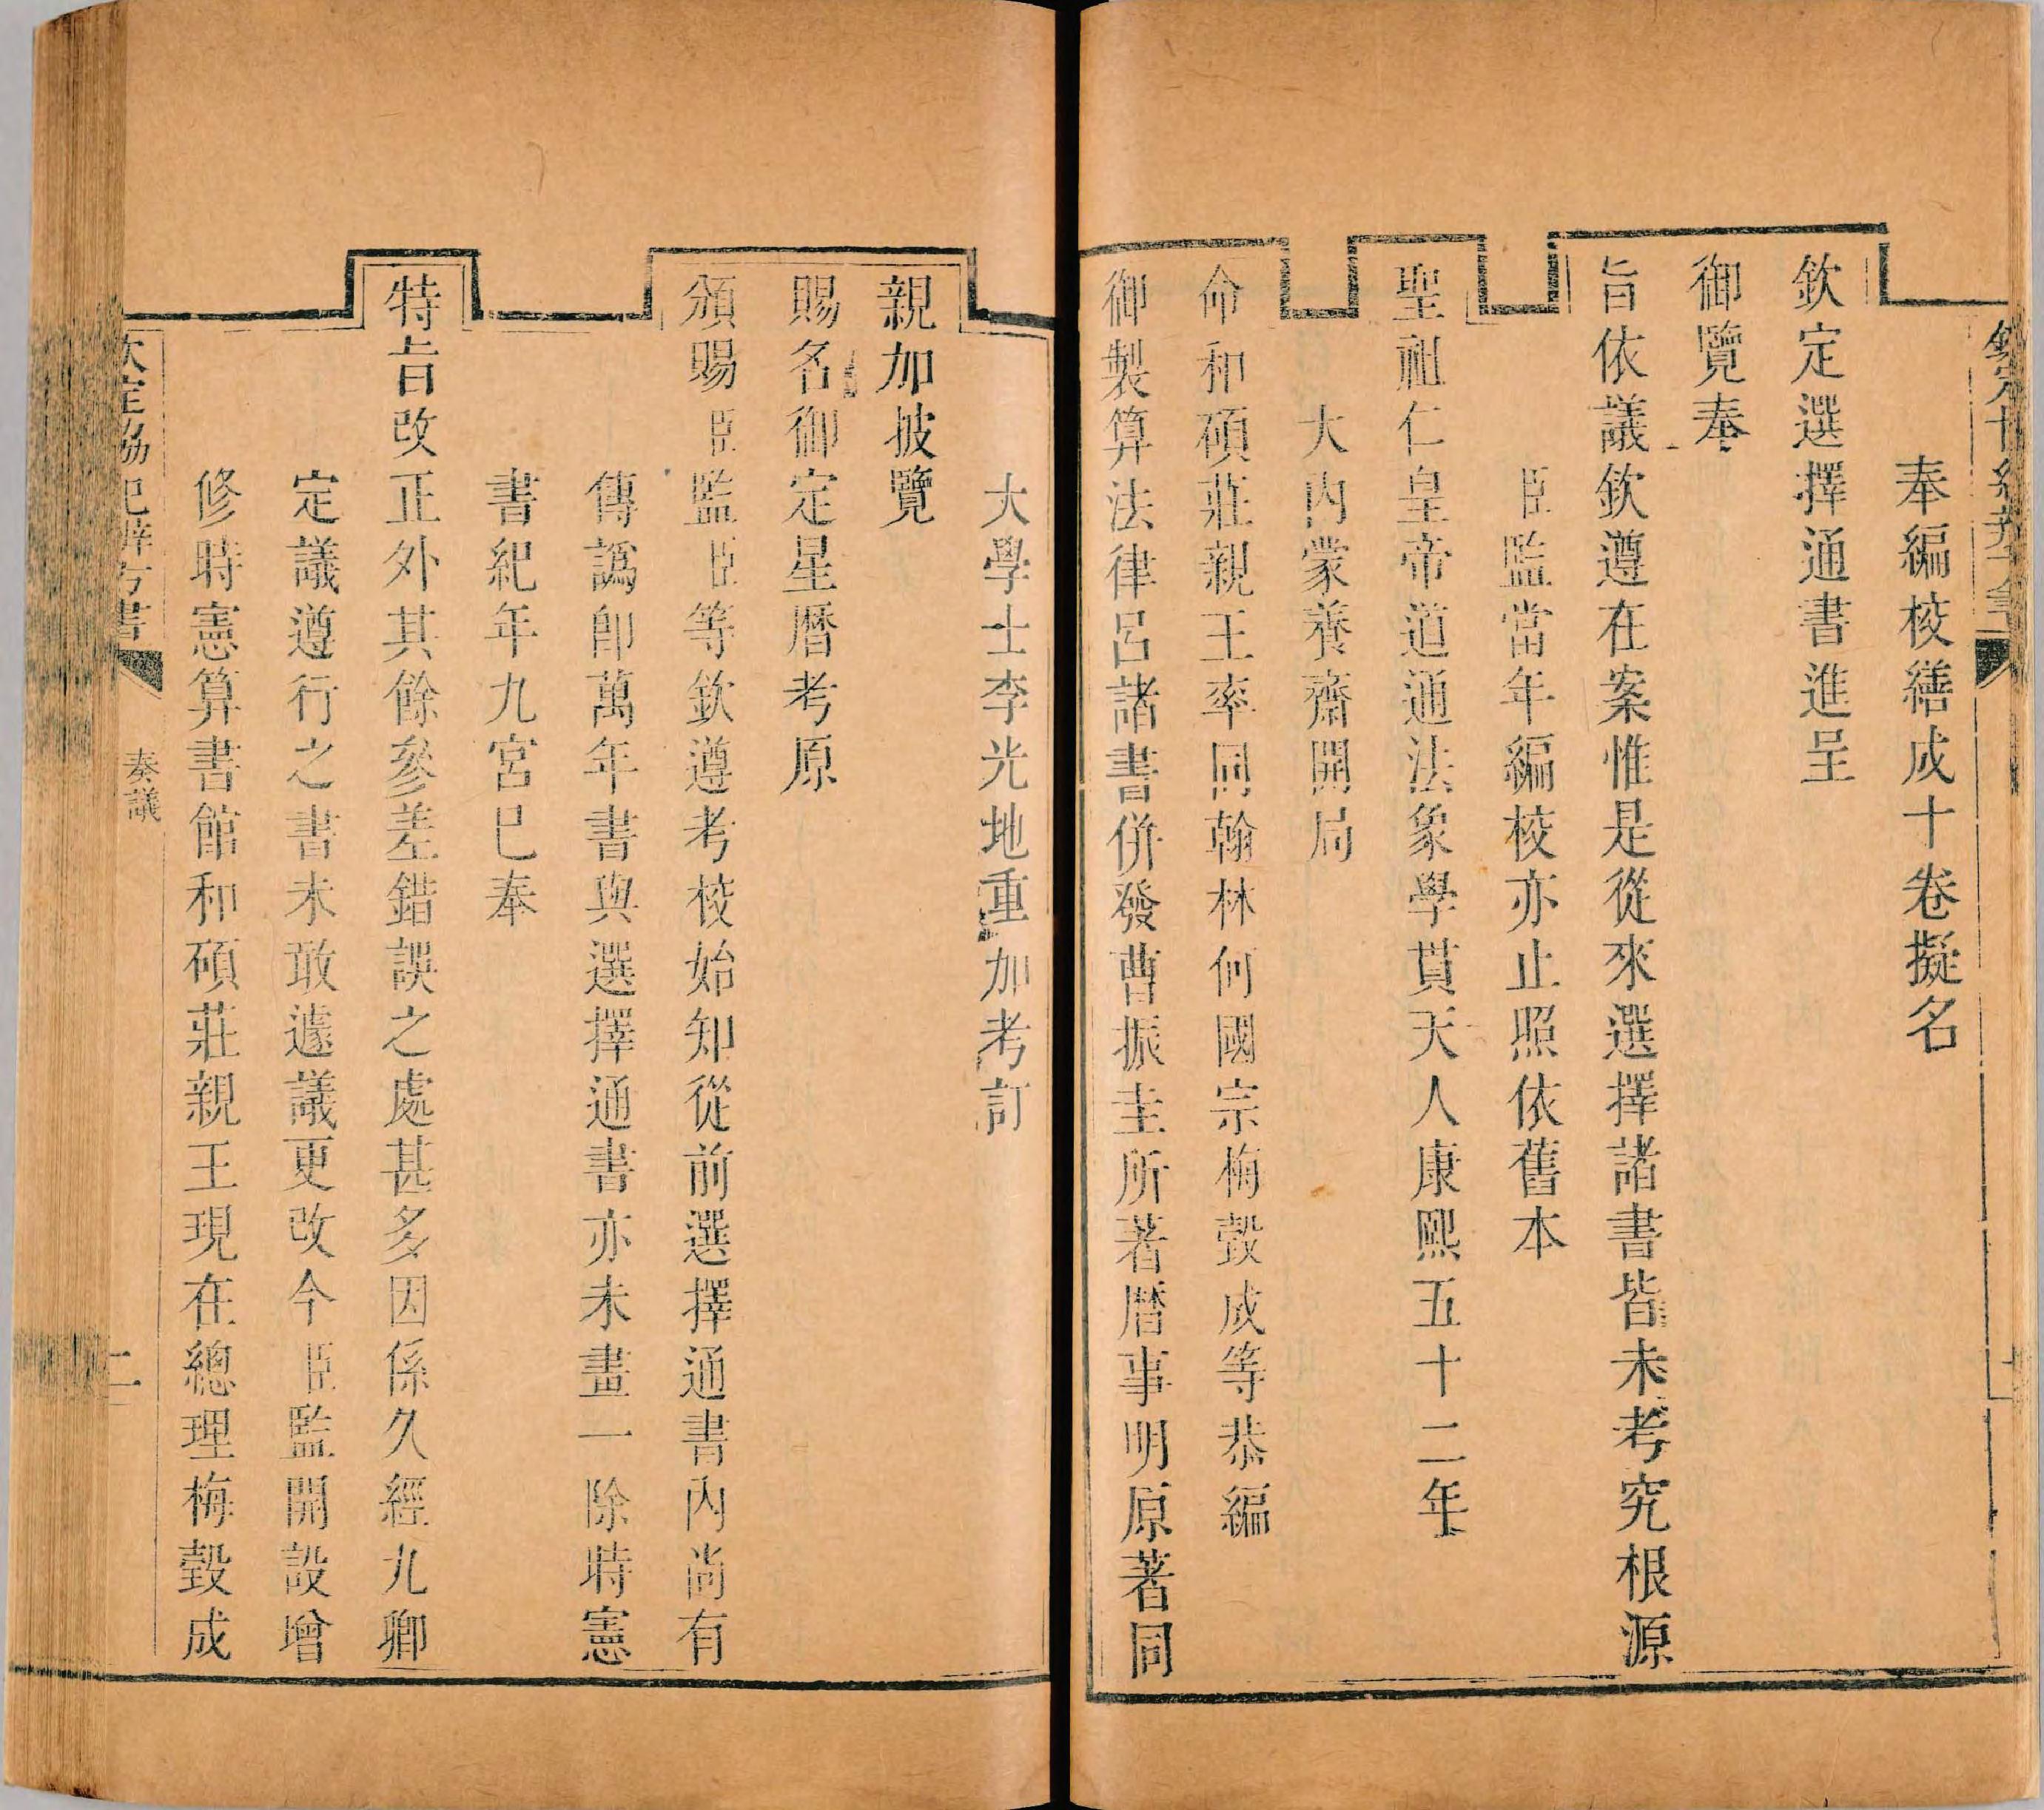 奉編校繕成十卷擬名
欽定選擇通書進呈
御覽奉
旨依議欽遵在案惟是從來選擇諸書皆未考究根源
臣監當年編校亦止照依舊本
聖祖仁皇帝道通法象學貫天人康熙五十二年
大內蒙養齋開局
命和碩莊親王率同翰林何國宗梅㲄成等恭編
御製算法律呂諸書併發曹振圭所著曆事明原著同
大學士李光地重加考訂
親加披覽
賜名御定星曆考原
頒賜臣監臣等欽遵考校始知從前選擇通書內尚有
傳譌卽萬年書與選擇通書亦未畫一除時憲
書紀年九宮巳奉
特旨改正外其餘參差錯誤之處甚多因係久經九卿
定議遵行之書未敢遽議更改今臣監開設增
修時憲算書館和碩莊親王現在總理梅㲄成
欽定協紀辨方書
奏議
二